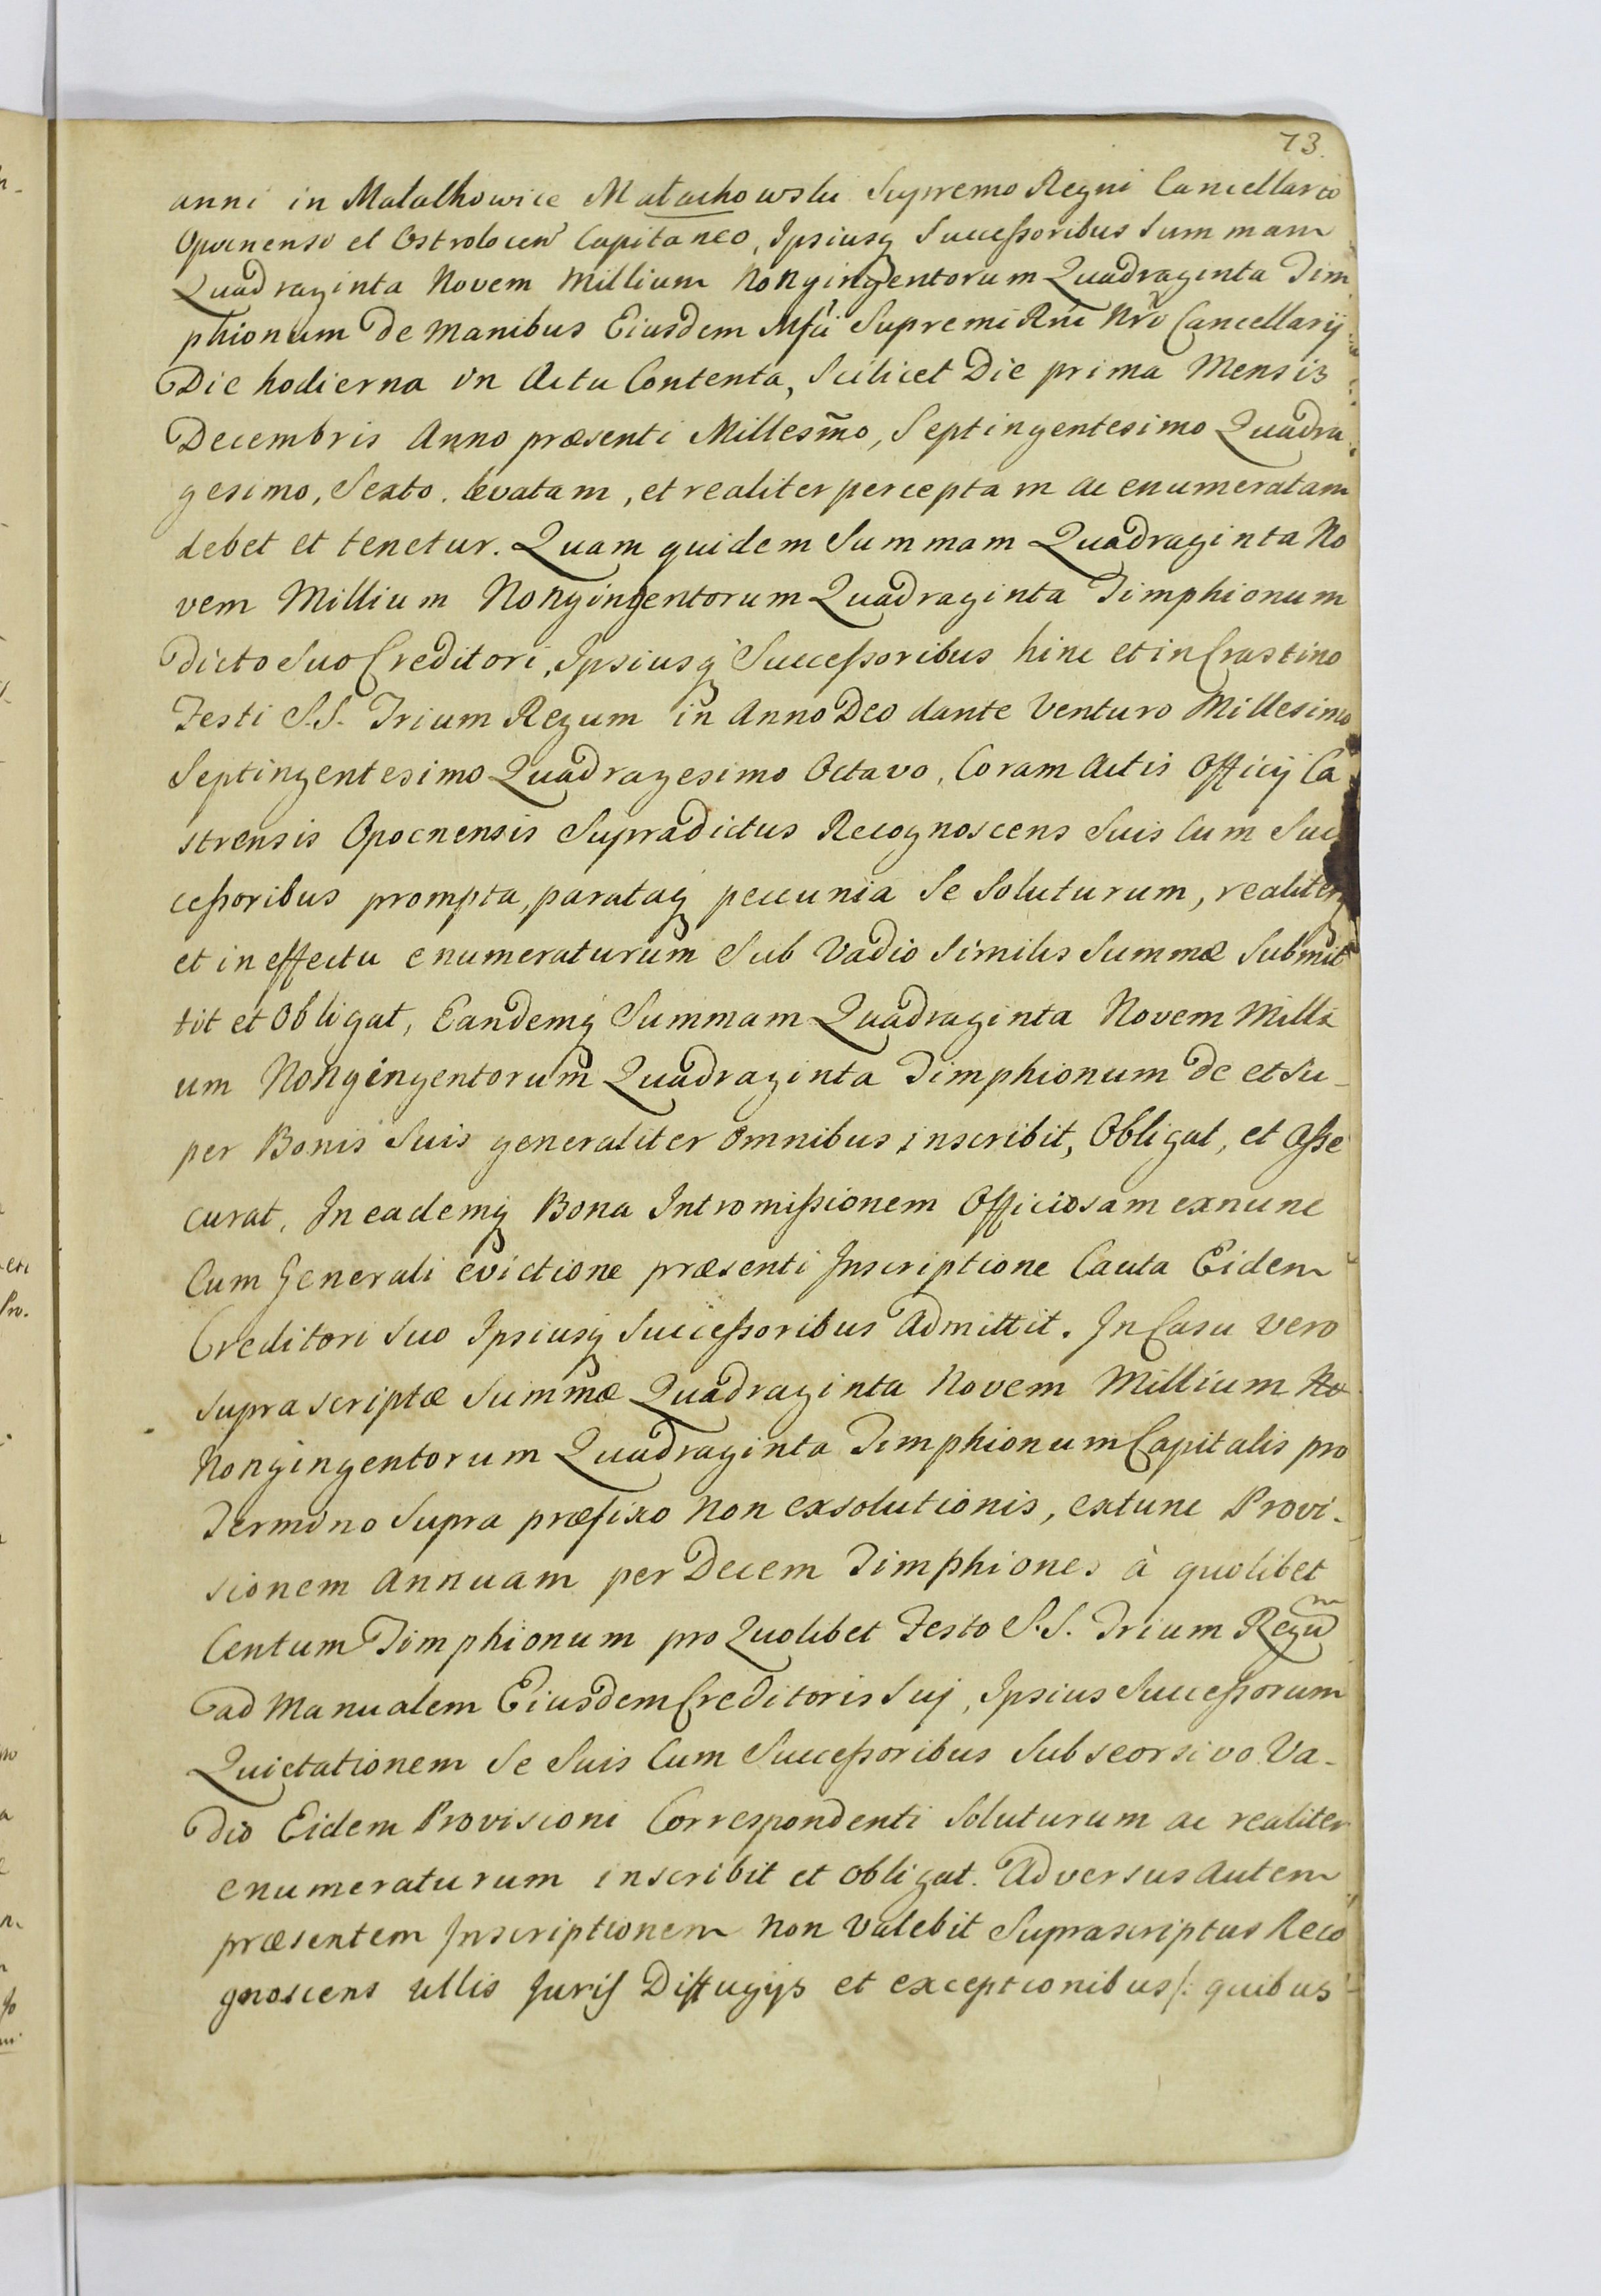 73.
anni in Malalhowice Małachowski Supremo Regni Cancellario
Opocnensi et Ostrolocen̄ Capitaneo, Ipsiusq Successoribus Summam
Quadraginta Novem Millium Nongingentorum Quadraginta Tim
phionum de manibus Eiusdem Mfci Supremi Rni Nri Cancellarij
Die hodierna in Actu Contenta, Scilicet Die prima Mensis
Decembris Anno præsenti Millesm̄o, Septingentesimo Quadra
gesimo, Sexto. levatam, et realiter perceptam ac enumeratam
debet et tenetur. Quam quidem Summam Quadraginta No
vem Millium Nongingentorum Quadraginta Timphionum
dicto Suo Creditori, Ipsiusq Successoribus hinc et in Crastino
Festi S.S. Trium Regum in Anno Deo dante Venturo Millesimo
Septingentesimo Quadragesimo Octavo, Coram Actis Officij Ca
strensis Opocnensis Supradictus Recognoscens Suis Cum Suc
cessoribus prompta, parataq peccunia Se Soluturum, realiter
et in effectu enumeraturum Sub Vadio Similis Summæ Submit
tit et Obligat, Eandemq Summam Quadraginta Novem Milli
um Nongingentorum Quadraginta Timphionum de et Su-
per Bonis Suis generaliter omnibus inscribit, Obligat, et Asse
curat, In eademq Bona Intromissionem Officiosam exnunc
Cum Generali evictione præsenti Inscriptione Cauta Eidem
Creditori Suo Ipsiusq Successoribus Admittit. In Casu vero
supra scriptæ Summæ Quadraginta Novem Millium No
Nongingentorum Quadraginta Timphionum Capitalis pro
Termino Supra præfixo Non exsolutionis, extunc Provi-
sionem Annuam per Decem Timphiones à quolibet
Centum Timphionum pro Quolibet Festo S.S. Trium Regum
ad Manualem Eiusdem Creditoris Suj, Ipsius Successorum
Quietationem Se Suis Cum Successoribus Sub seorsivo Va-
dio Eidem Provisioni Correspondenti Soluturum ac realiter
enumeraturum inscribit et obligat. Adversus Autem
præsentem Inscriptionem Non Valebit Suprascriptus Reco
gnoscens ullis Juris Diffugijs et exceptionibus /: quibus